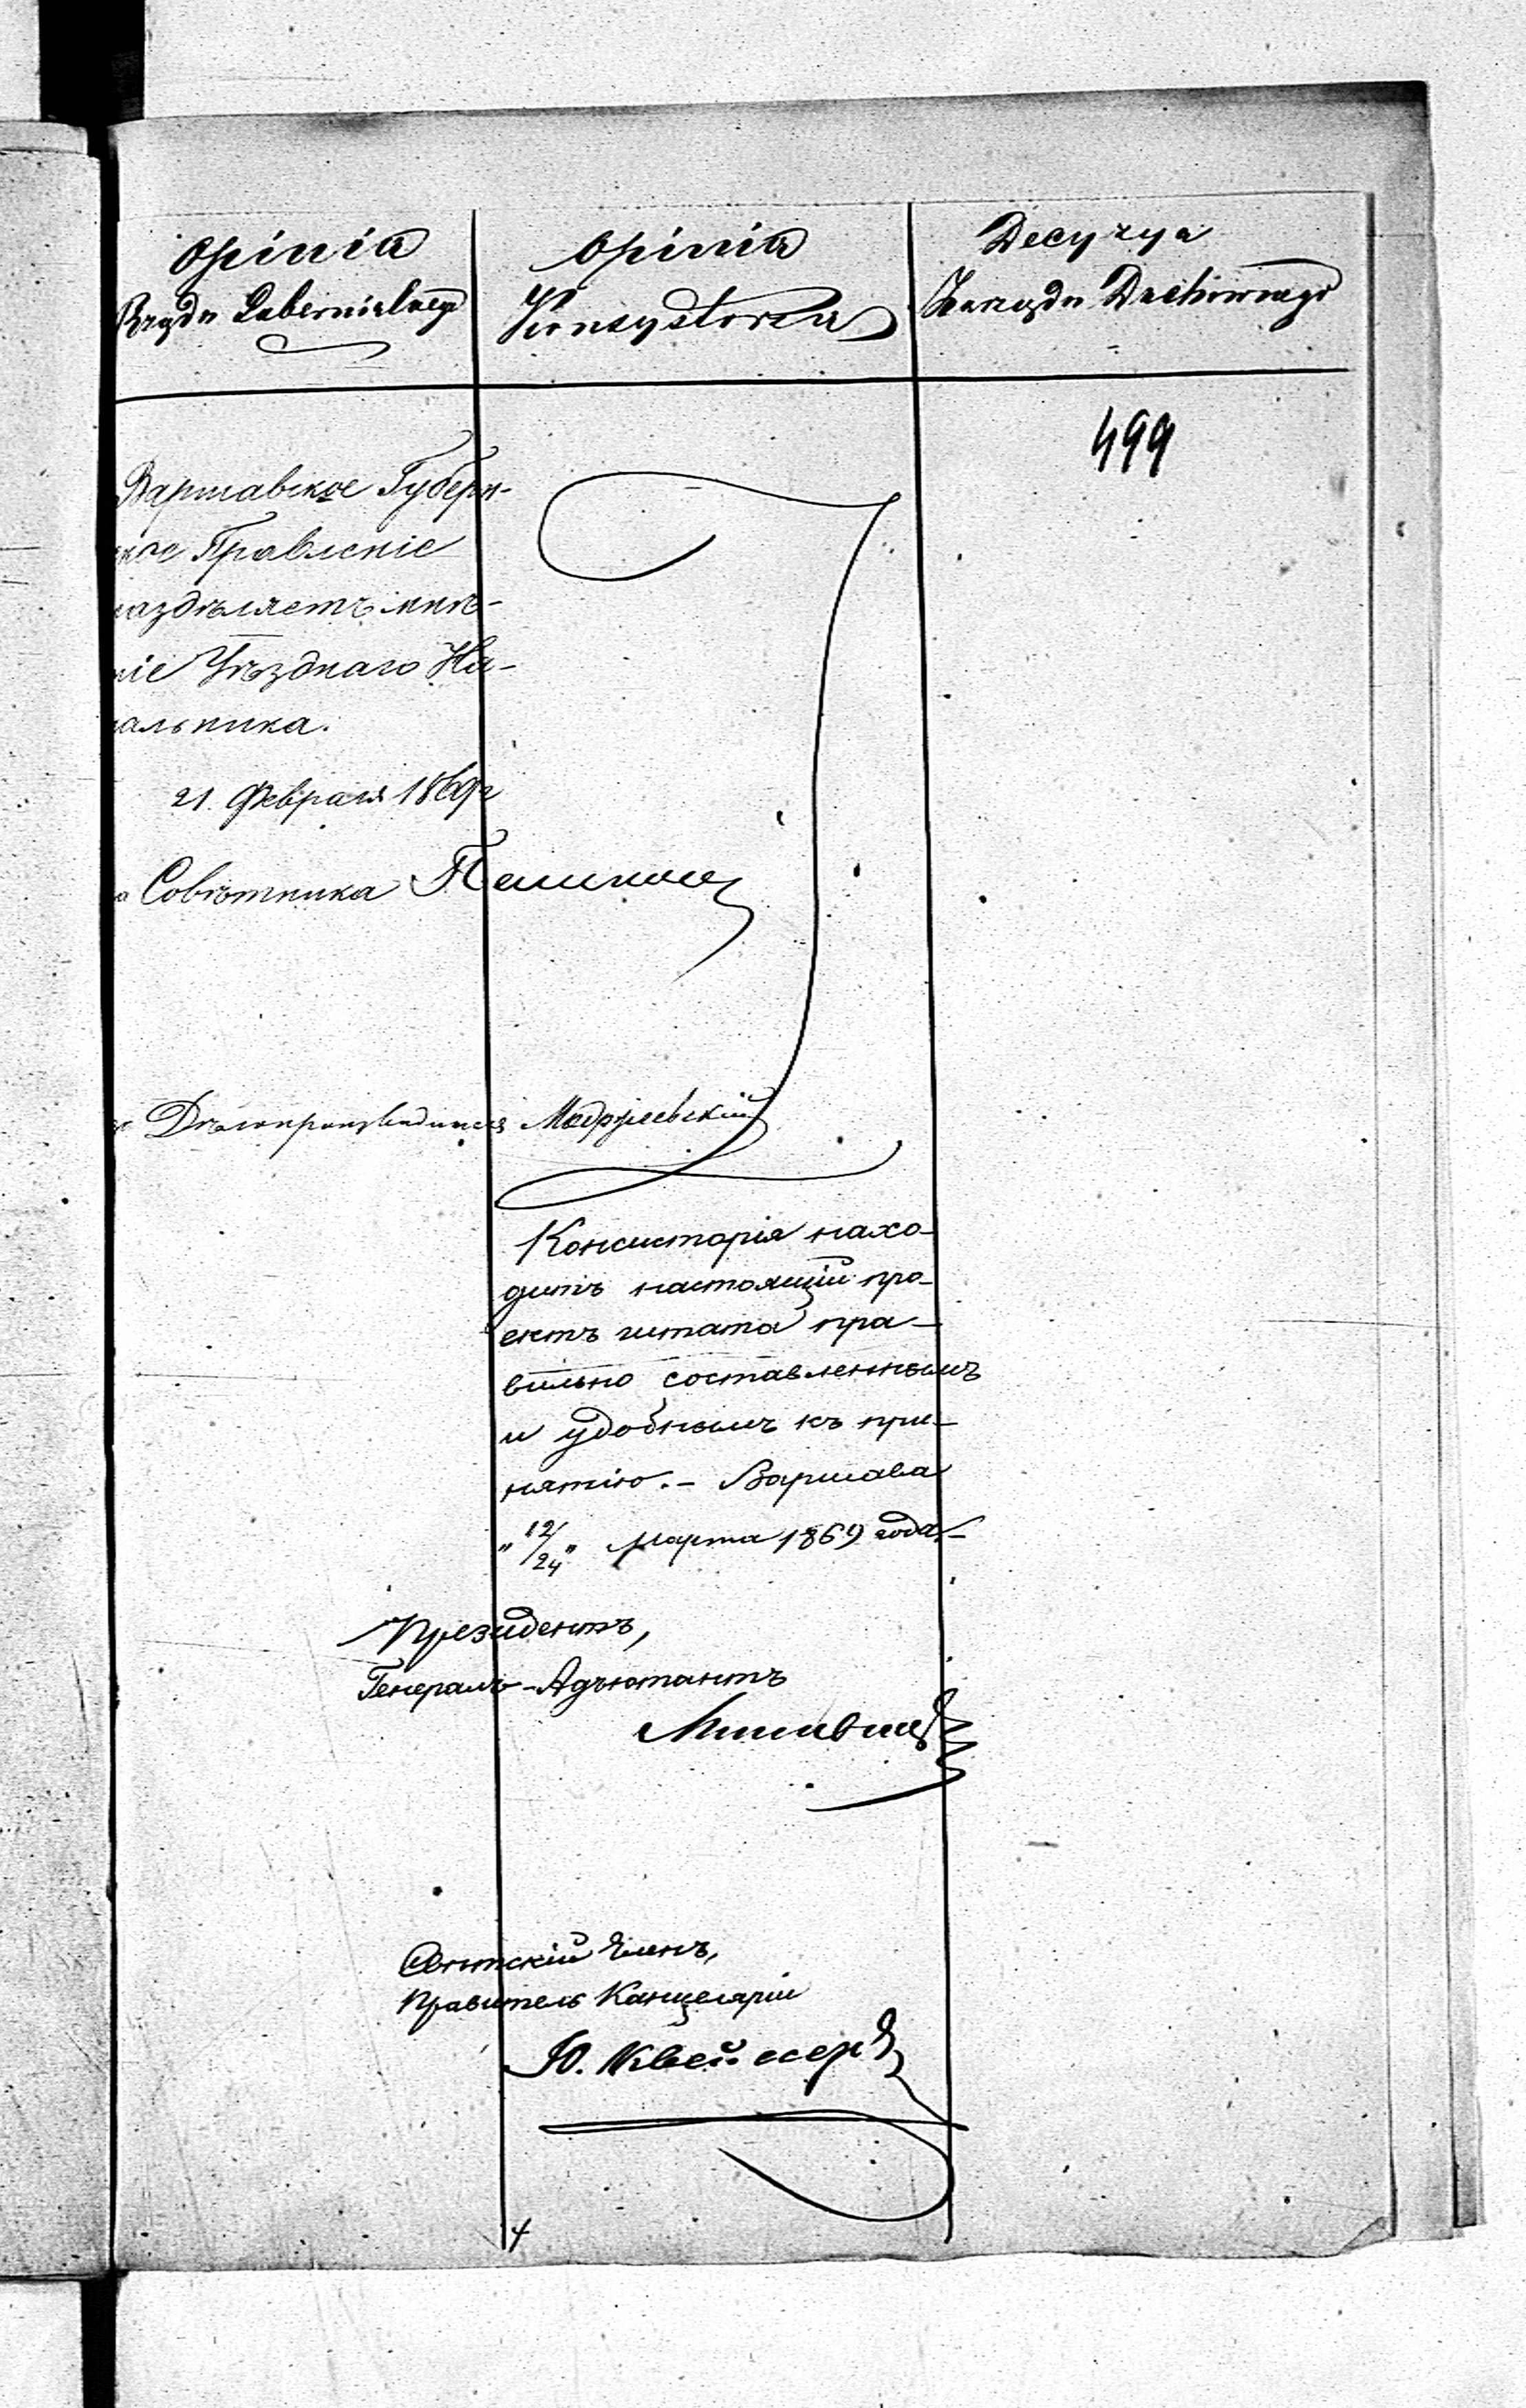 Opinia
Rządu Gubernialnego
Opinia
Konsystorza
Decyzya
Zarządu Duchownego
499
Варшавское Губерн-
ское Правленіе
раздѣляетъ мнѣ-
ніе Уѣзднаго На-
чальника.
21. Февраля 1869 г
Совѣтника
Дѣлопроизводитель
Консисторія нахо-
дитъ настоящій про-
ектъ штата пра-
вильно составленнымъ
и удобнымъ къ при-
нятію. - Варшава
"12/24" Марта 1869 года. -
Президентъ,
Генералъ-Адъютантъ
Свѣтскій Членъ,
Правитель Канцеляріи
Ю. Квейссеръ